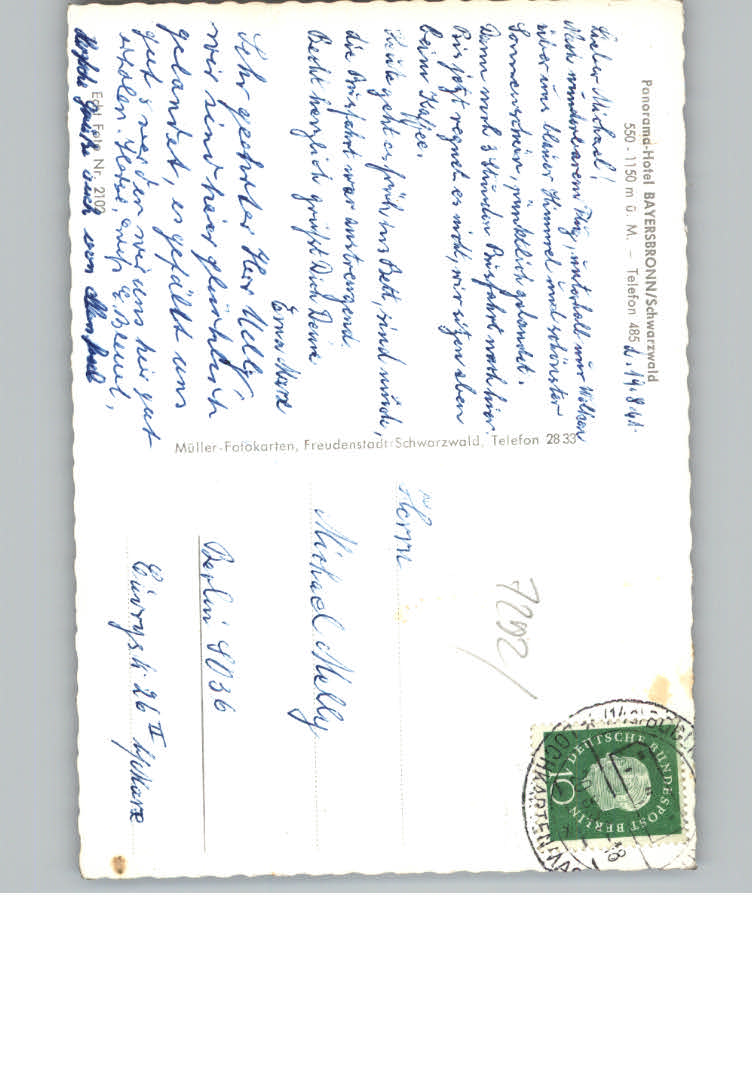 Panorama-Hotel BAYERSBRONN/Schwarzwald
550 - 1150 m ü. M. - Telefon 485
d. 19.8.61.
Lieber Michael!
Nach wunderbarem Flug, unterhalb nur Wolken
über uns blauer Himmel und schönster
Sonnenschein, pünktlich gelandet.
Dann noch 3 Stunden Busfahrt nach hier.
Bis jetzt regnet es nicht, wir sitzen eben
beim Kaffee.
Heute geht es früh ins Bett, sind müde,
die Busfahrt war anstrengend.
Recht herzlich grüßt Dich Deine
Erna Marx
Sehr geehrter Herr Melly,
wir sind hier glücklich
gelandet, es gefällt uns
gut u. werden wir uns hier gut
erholen. Herzl. Gruß E.
Herzliche Grüße auch von
Echt Foto Nr. 2102
Müller-Fotokarten, Freudenstadt/Schwarzwald, Telefon 28 33
7292
Herrn
Michael Melly
Berlin SO36
Cuvrystr. 26 II b/Marx
DEUTSCHE BUNDESPOST BERLIN
10